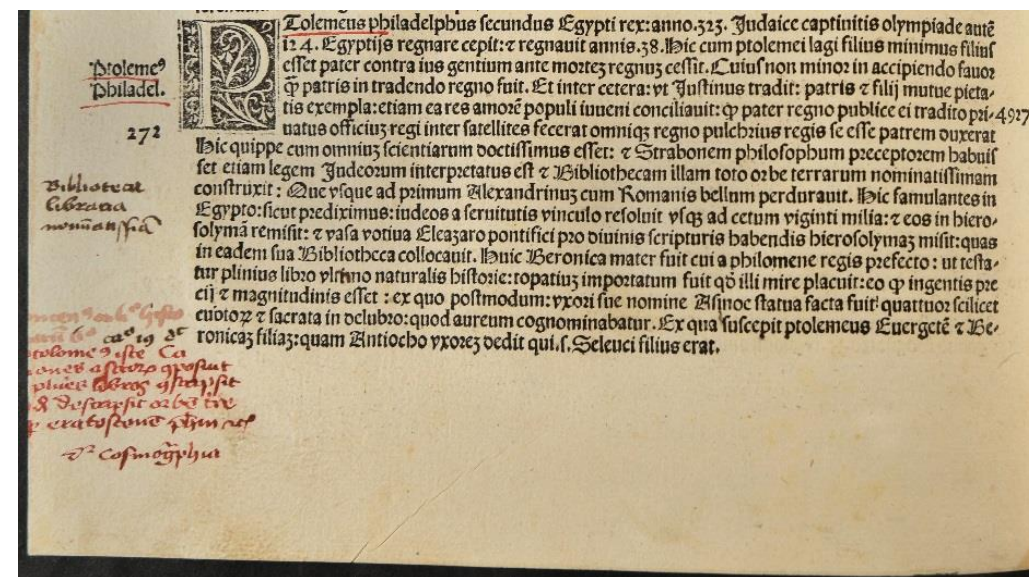 Tolemeus philadelphus secundus Egypti rex: anno.323. Judaice captiuitis olympiade autē
124. Egyptijs regnare cepit: ⁊ regnauit annis.38. Hic cum ptolemei lagi filius minimus filiuſ
eſſet pater contra ius gentium ante morteꝫ regnuꝫ ceſſit. Cuius non minor in accipiendo fauor
ꝙ̃ patris in tradendo regno fuit. Et inter cetera: vt Juſtinus tradit: patris ⁊ filij mutue pieta-
tis exempla: etiam ea res amorē populi iuueni conciliauit: ꝙ pater regno publice ei tradito pri-
uatus officiuꝫ regi inter ſatellites fecerat omniqꝫ regno pulchrius regis ſe eſſe patrem duxerat
Hic quippe cum omniuꝫ ſcientiarum doctiſſimus eſſet: ⁊ Strabonem philoſophum preceptorem habuiſ
ſet etiam legem Judeorum interpretatus eſt ⁊ Bibliothecam illam toto orbe terrarum nominatiſſimam
conſtruxit: Que vſque ad primum Alexandrinuꝫ cum Romanis bellum perdurauit. Hic famulantes in
Egypto: ſicut prediximus: iudeos a ſeruitutis vinculo reſoluit vſqꝫ ad cetum viginti milia: ⁊ eos in hiero-
ſolymā remiſit: ⁊ vaſa votiua Eleazaro pontifici pro diuinis ſcripturis habendis hieroſolymaꝫ miſit: quas
in eadem ſua Bibliotheca collocauit. Huic Beronica mater fuit cui a philomene regis prefecto: ut teſta-
tur plinius libro vltimo naturalis hiſtorie: topatiuꝫ importatum fuit qd̓ illi mire placuit: eo ꝙ ingentis pre
cij ⁊ magnitudinis eſſet: ex quo poſtmodum: vxori ſue nomine Aſinoe ſtatua facta fuit: quattuor ſcilicet
cubitoꝝ ⁊ ſacrata in delubro: quod aureum cognominabatur. Ex qua ſuſcepit ptolemeus Euergetē ⁊ Be-
ronicaꝫ filiaꝫ: quam Antiocho vxoreꝫ dedit qui.ſ. Seleuci filius erat.
Ptolemeꝰ
Philadel.
272
4927
Bibliotecae
libraria
tolomeꝰ iste
plures libros
descripsit orbē
Cosmogphia